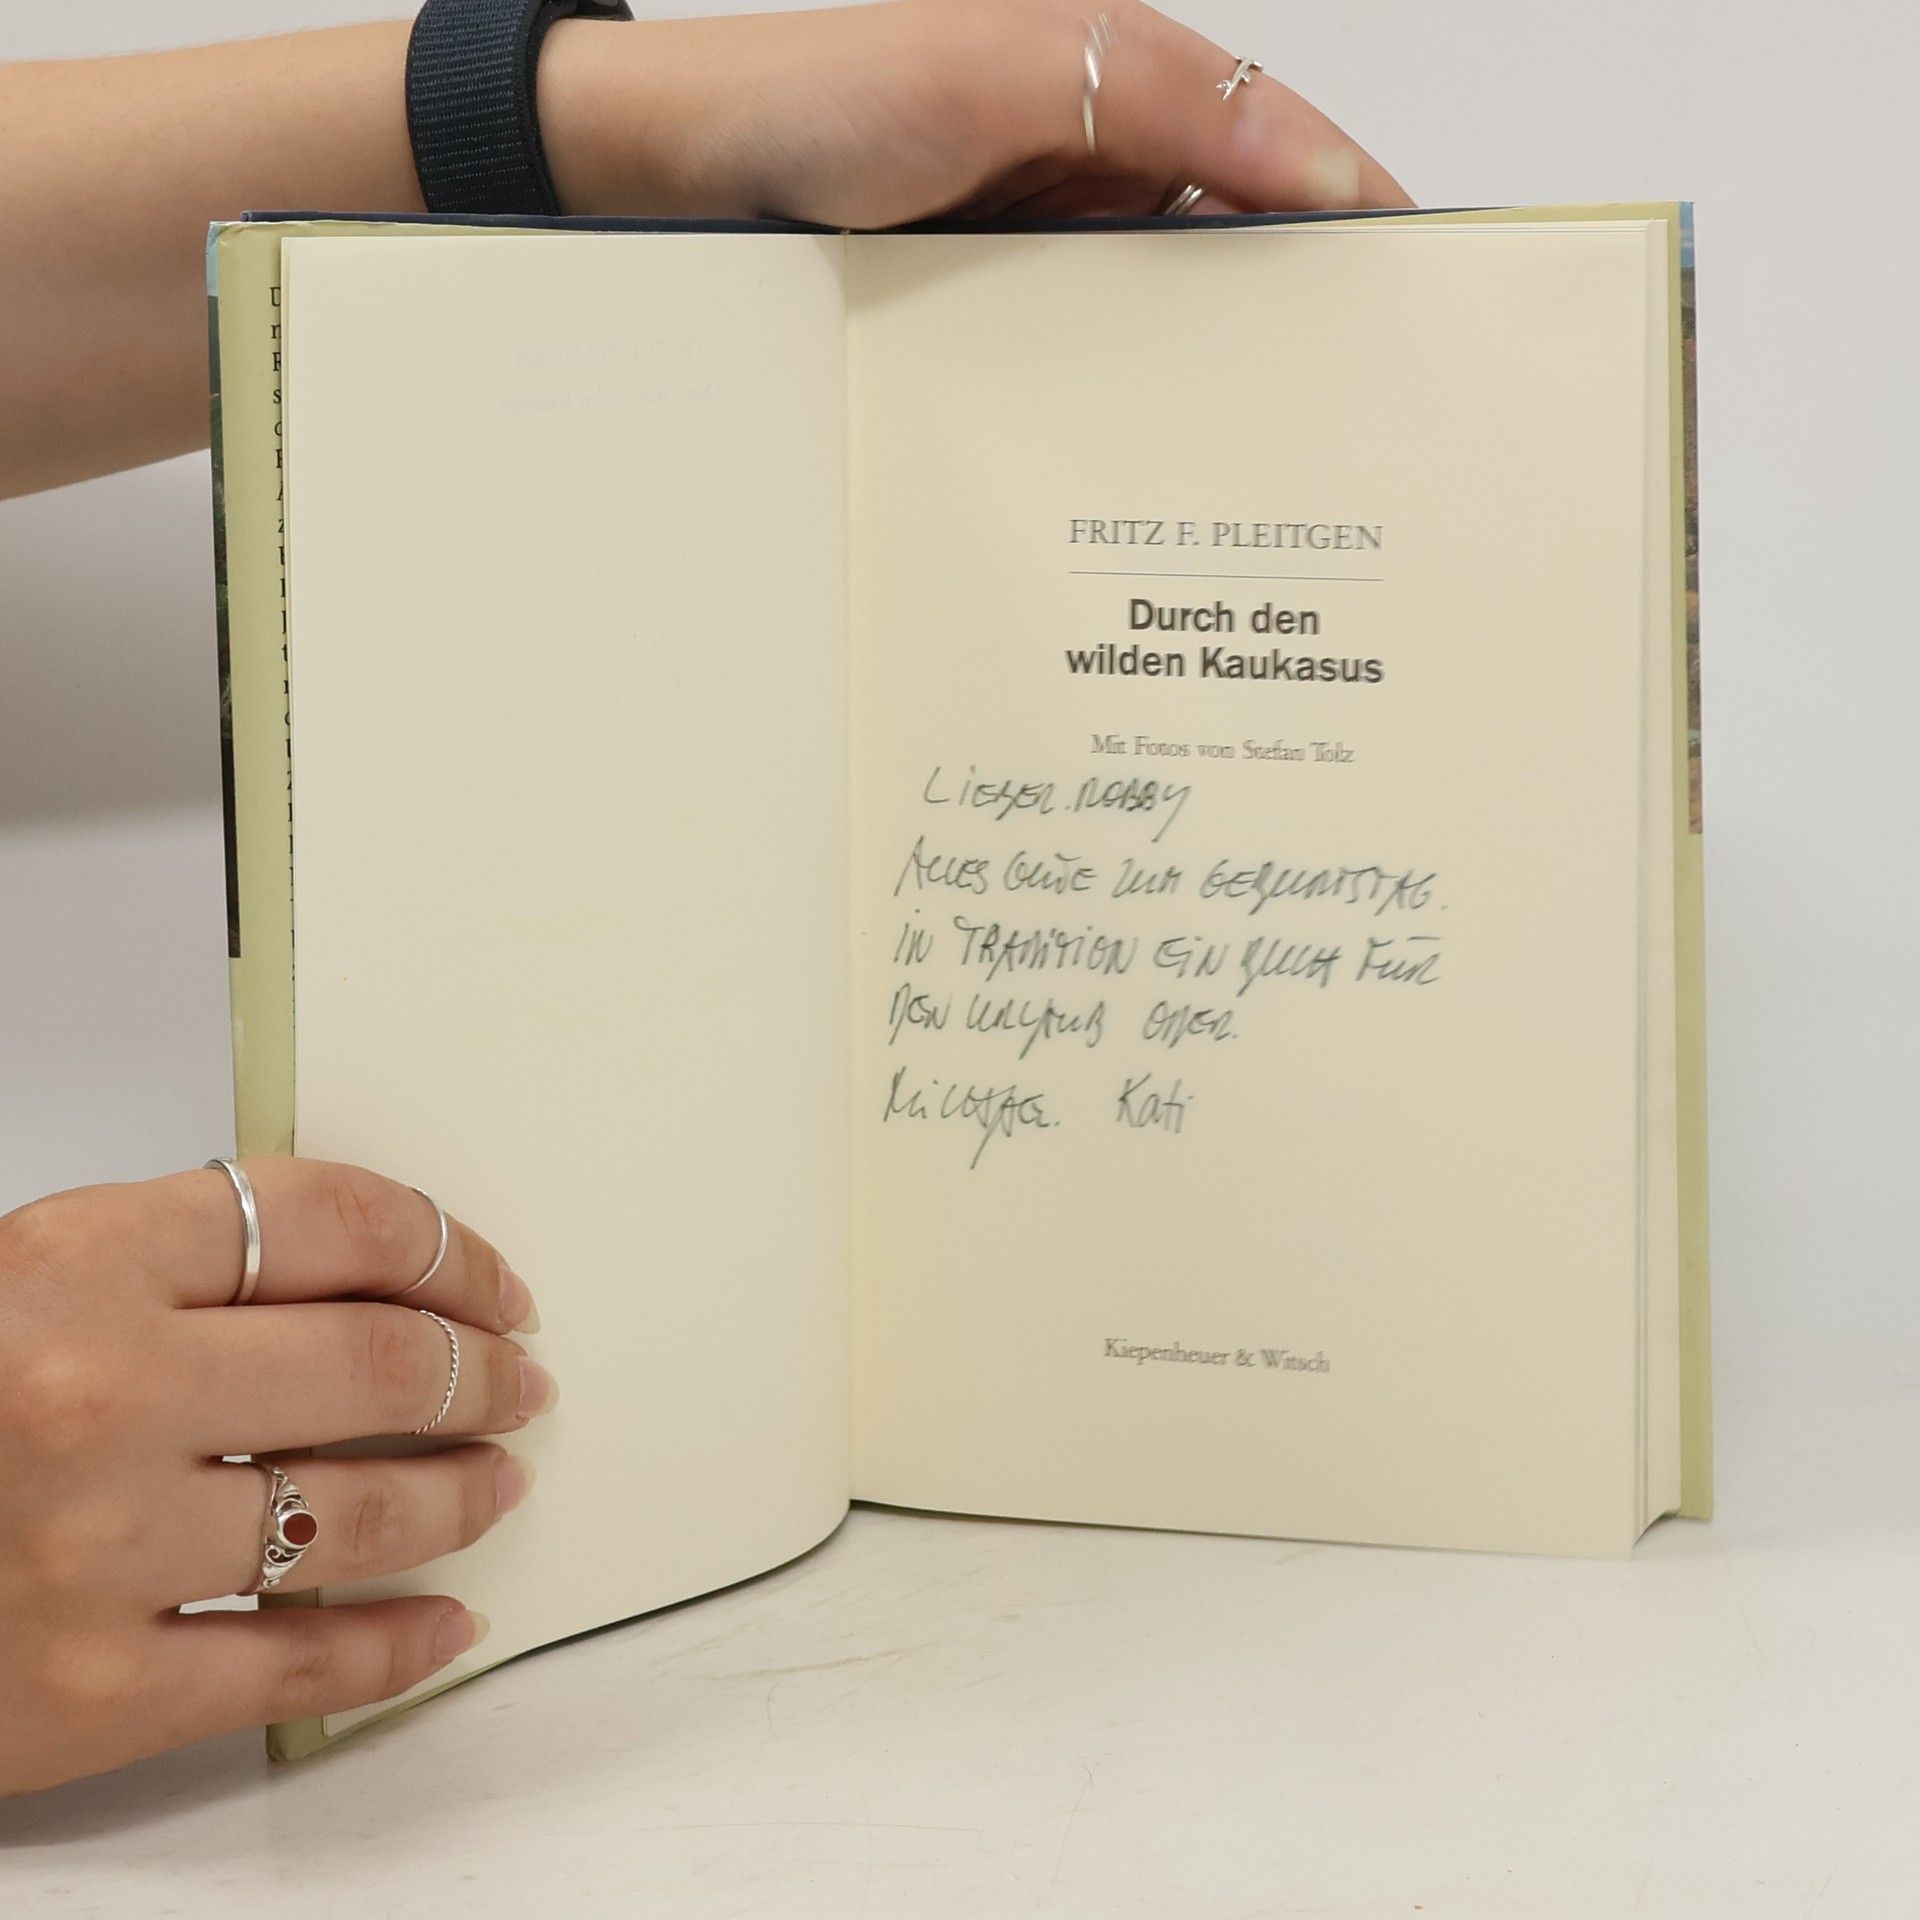 FRITZ F. PLEITGEN
Durch den
wilden Kaukasus
Mit Fotos von Stefan Tolz
LIEBER ROBBY
ALLES GUTE ZUM GEBURTSTAG.
IN TRADITION EIN BUCH FÜR
DEN URLAUB ODER.
Kati
Kiepenheuer & Witsch